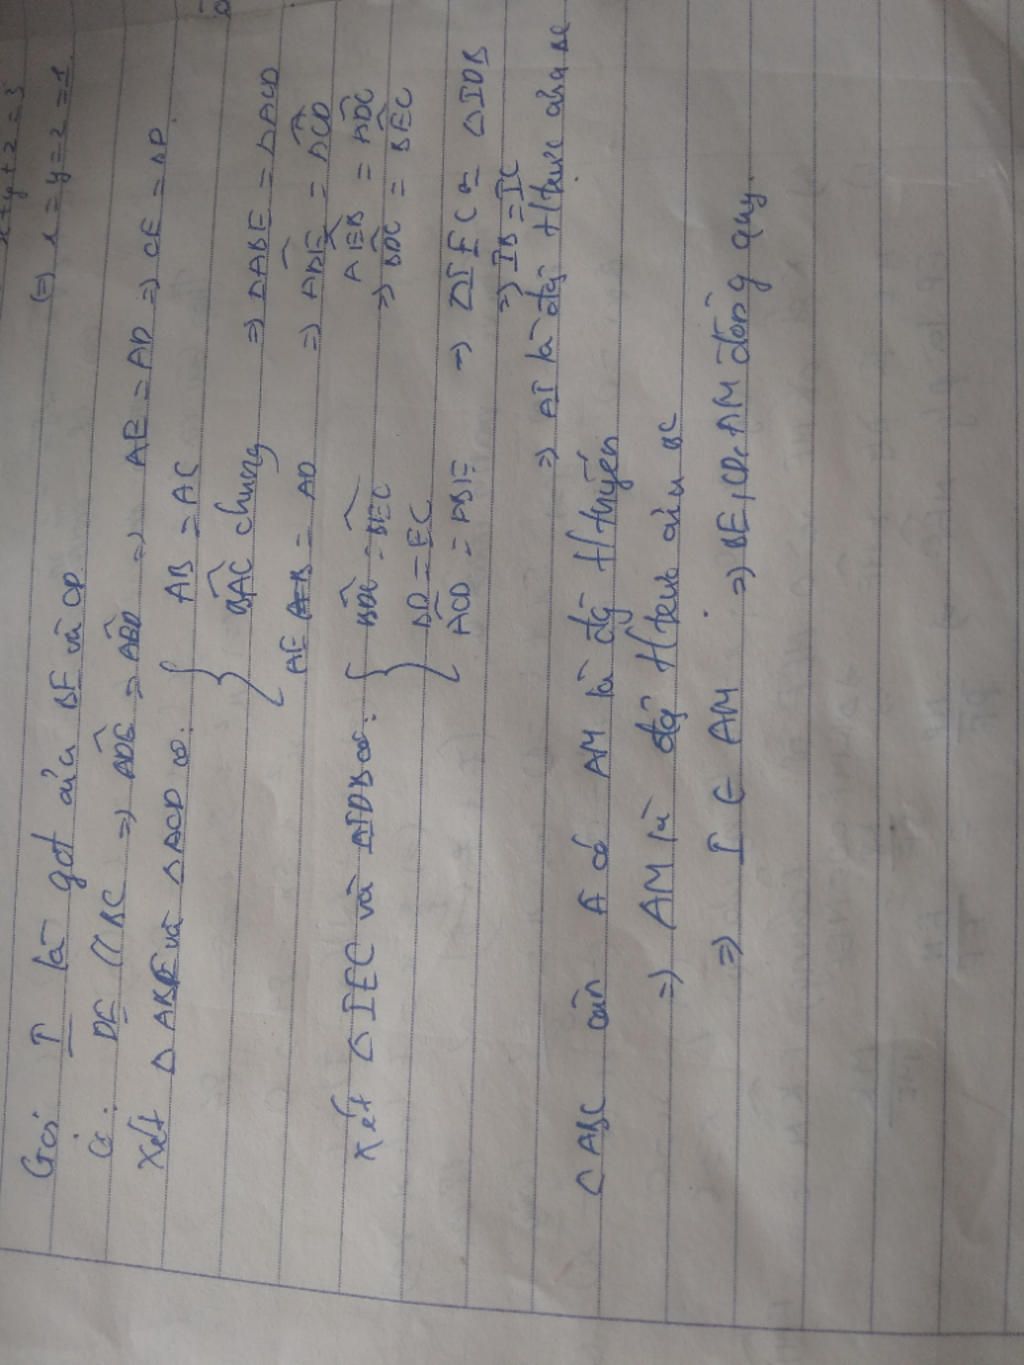 x+y+z=3
(=) x=y=z=1
Gọi I là gđ của BE và CD
Có: DE // BC => ADE = ABC => AE = AD => CE = BD
Xét △ABE và △ACD có: { AB = AC
BAC chung => △ABE = △ACD
AE = AD => ABE = ACD
AEB = ADC
=> BDC = BEC
Xét △IEC và △IDB có: { BDC = BEC
BD = EC
ACD = ABE → △IEC = △IDB
=> IB = IC
=> AI là đg Htrực của BC
△ABC cân A có AM là đg Htuyến
=> AM là đg Htrực của BC
=> I ∈ AM => BE, CD, AM đồng quy.